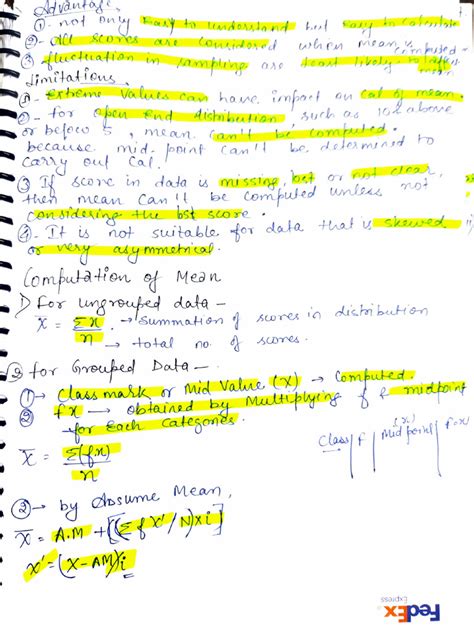 Advantage
①- not only Easy to understand but Easy to calculate
②- All scores are considered when mean is computed -
③ fluctuation in sampling are least likely to affect mean
Limitations
①- Extreme values can have impact on Cal of mean.
②- for open End distribution, such as 10 & above
or below 5, mean can't be computed.
because mid-point can't be determined to
Carry out Cal.
③ If score in data is missing, lost or not clear,
then mean can't be computed unless not
Considering the lost score.
④- It is not suitable for data that is skewed
or very asymmetrical.
Computation of Mean
1) For ungrouped data -
X̄ = Σx / n → Summation of scores in distribution
→ total no. of scores.
② for Grouped Data -
①→ Class mark or Mid Value (X) → Computed.
② fx → obtained by Multiplying f & midpoint
for Each Categories.
X̄ = Σ(fx) / n
Class | F | Mid point (x) | F×x
②→ by Assume Mean,
X̄ = A.M + [(Σfx'/N)×i]
x' = (X-AM)/i
FedEx
Express